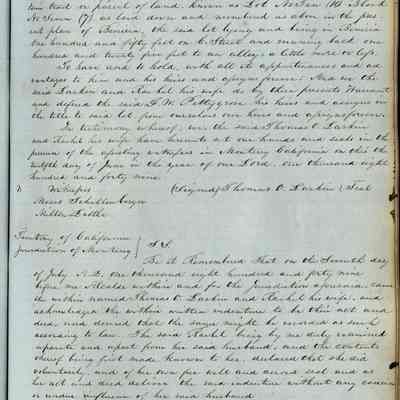 tain tract or parcel of land, known as Lot No Ten (10) Block
No Seven (7) as laid down and numbered as above in the pres
ent plan of Benicia, the said lot lying and being in Benicia
One hundred and fifty feet on the Street and running back one
hundred and twenty five feet to an alley, a little more or less.
To have and to hold, with all its appurtenances and ad
vantages to him and his heirs and assigns forever: And we the
said Larkin and Rachel his wife do by these presents Warrant
and defend the said F. W. Pettygrove his heirs and assigns in
the title to said lot, from ourselves our heirs and assigns forever.
In testimony whereof, we, the said Thomas O. Larkin
and Rachel his wife have hereunto set our hands and seals in the
presence of the assisting witnesses in Monterey California on this the
twelfth day of June in the year of our Lord, one thousand eight
hundred and forty nine.
Witnesses (Signed) Thomas O. Larkin Seal
Moses Schallenberger
Milton Little
Territory of California
Jurisdiction of Monterey } S.S.
Be it Remembered that on the Seventh day
of July A.D. one thousand eight hundred and forty nine
before me Alcalde within and for the jurisdiction aforesaid came
the within named Thomas O. Larkin and Rachel his wife, and
acknowledge the within written indenture to be their act and
deed, and desired that the same might be recorded as such
according to law. The said Rachel being by me duly examined
separate and apart from her said husband, and the contents
thereof being first made known to her, declared that she did
voluntarily, and of her own free will and accord seal and as
her act and deed deliver the said indenture without any coercion
or undue influence of her said husband